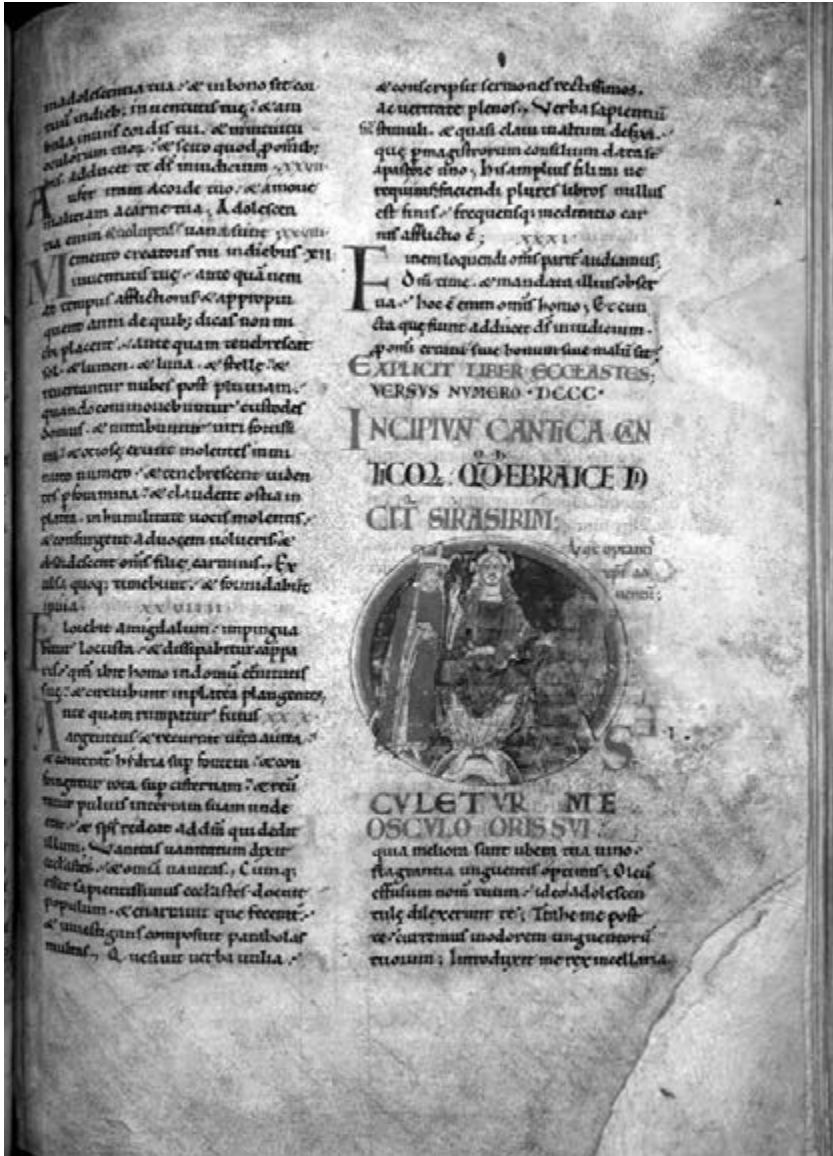 in adolescentia tua · & in bono sit cor
tuũ in dieb; iuuentutis tuę · & am
bula in uiis cordis tui · & in intuitu
oculorum tuoȝ · & scito quod ꝓ omĩb;
his adducet te dš in iudicium · XXVII
Aufer iram a corde tuo · & amoue
malitiam a carne tua; Adolescen
tia enim & uoluptas uana sunt · XXVIII
Memento creatoris tui in diebus · XII
iuuentutis tuę · ante quã ueniat
tempus afflictionis · & appropin
quent anni de quib; dicas non mi
chi placent · ante quam tenebrescat
sol · & lumen · & luna · & stellę · &
reuertantur nubes post pluuiam ·
quando commouebuntur custodes
domus · & nutabuntur uiri fortissi
mi · & otiosę erunt molentes in mi
nuto numero · & tenebrescent uiden
tes ꝑ foramina · & claudent ostia in
platea · in humilitate uocis molentis ·
& consurgent ad uocem uolucris · &
obsurdescent om̃s filię carminis · Ex
celsa quoq; timebunt · & formidabũt
in uia · XXVIIII
Florebit amigdalum · inpingua
bitur locusta · & dissipabitur cappa
ris · qm̃ ibit homo in domũ ęternitatis
suę · & circuibunt in platea plangentes ·
Ante quam rumpatur funis XXX
argenteus · & recurrat uitta aurea ·
& conterat hydria sup fontem · & con
fringatur rota sup cisternam · & reũ
tatur puluis in terram suam unde
erat · & sps̃ redeat ad dm̃ qui dedit
illum · Vanitas uanitatum dixit
ecclastes · & omĩa uanitas · Cumq;
esset sapientissimus ecclastes · docuit
populum · & enarrauit que fecerit ·
& inuestigans composuit parabolas
multas · Quesiuit uerba utilia ·
& conscripsit sermones rectissimos ·
ac ueritate plenos · Verba sapientiũ
sic̃ stimuli · & quasi claui in altum defixi ·
quę ꝑ magistrorum consilium data st̃
a pastore uno; His amplius fili mi ne
requiras; faciendi plures libros nullus
est finis · frequensq; meditatio car
nis afflictio ẽ; XXXI
Finem loquendi om̃s parit̃ audiamus;
Dm̃ time · & mandata illius obser
ua · hoc ẽ enim omĩs homo; Et cun
cta que fiunt adducet dš in iudicium ·
ꝓ omi errato siue bonum siue malũ sit;
EXPLICIT LIBER ECCLASTES;
VERSVS NVMERO · DCCC ·
INCIPIVN CANTICA CAN
TICOꝜ · QOD HEBRAICE DI
CIT̃ SIRASIRIM;
Vox optanti
xp̃i ad
uentũ;
OSCVLETVR ME
OSCVLO ORIS SVI
quia meliora sunt ubera tua uino ·
flagrantia unguentis optimis; Oleũ
effusum nom̃ tuum · ideo adolescen
tulę dilexerunt te; Trahe me post
te · curremus in odorem unguentorũ
tuorum; Introduxit me rex in cellaria